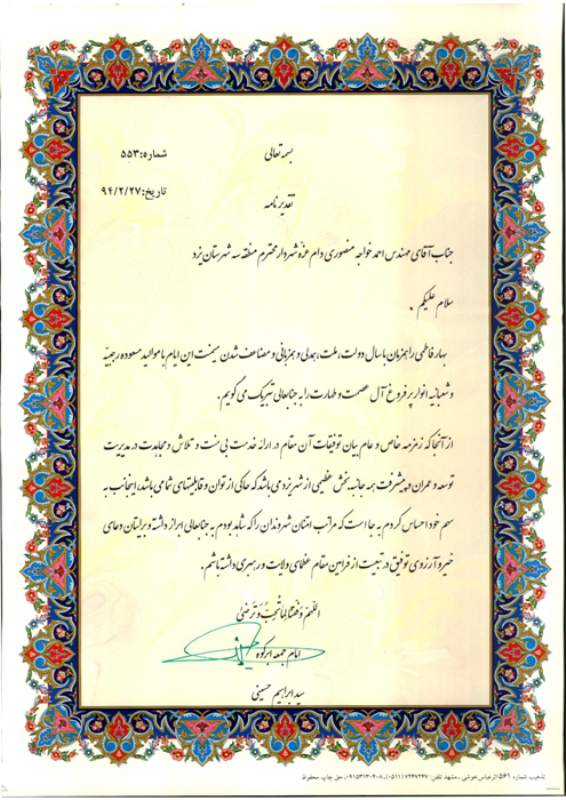 بسمه تعالی
شماره: ۵۵۳
تاریخ: ۹۴/۲/۲۷
تقدیر نامه
جناب آقای مهندس احمد خواجه منصوری دام عزه شهردار محترم منطقه سه شهرستان یزد
سلام علیکم .
بهار فاطمی را همزمان با سال دولت، ملت، همدلی و همزبانی و مضاعف شدن میمنت این ایام با موالید مسعوده رجبیه
و شعبانیه انوار پر فروغ آل عصمت و طهارت را به جنابعالی تبریک می گویم .
از آنجا که زمزمه خاص و عام بیان توفیقات آن مقام در ارائه خدمت بی منت و تلاش و مجاهدت در مدیریت
توسعه و عمران و پیشرفت همه جانبه بخش عظیمی از شهر یزد می باشد که حاکی از توان و قابلیتهای شما می باشد، اینجانب به
سهم خود احساس کردم به جا است که مراتب امتنان شهروندان را که شاهد بودم به جنابعالی ابراز داشته و برایتان دعای
خیر و آرزوی توفیق در تبعیت از فرامین مقام عظمای ولایت و رهبری داشته باشم .
اللهم وفقنا لما تحب و ترضی
امام جمعه ابرکوه
سید ابراهیم حسینی
تذهیب شماره ۵۶۱ اثر عباس خوشی ـ مشهد تلفن: ۷۲۴۷۲۴۷ (۰۵۱۱)، ۰۹۱۵۳۱۳۰۴۰۸، حق چاپ محفوظ